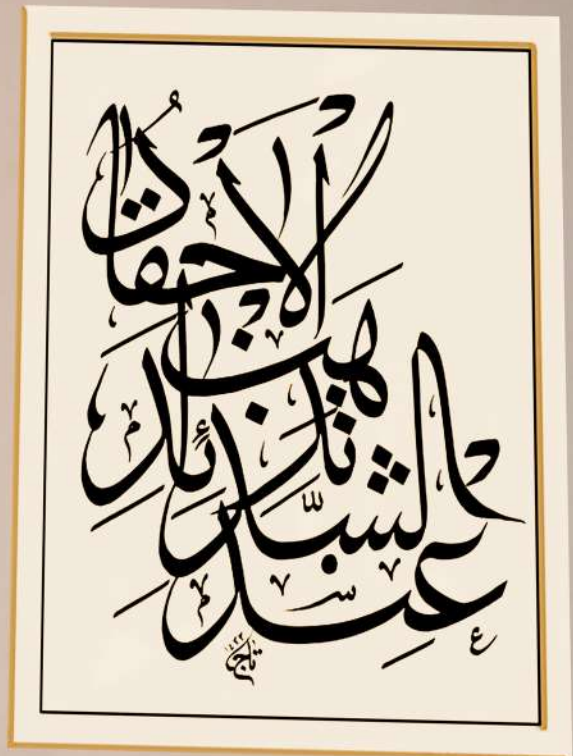 عند الشدائد تذهب الأحقاد
تاج